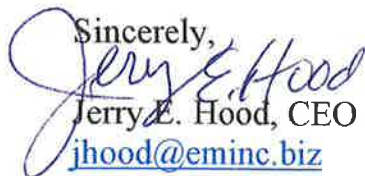 Sincerely,
Jerry E. Hood
Jerry E. Hood, CEO
jhood@eminc.biz